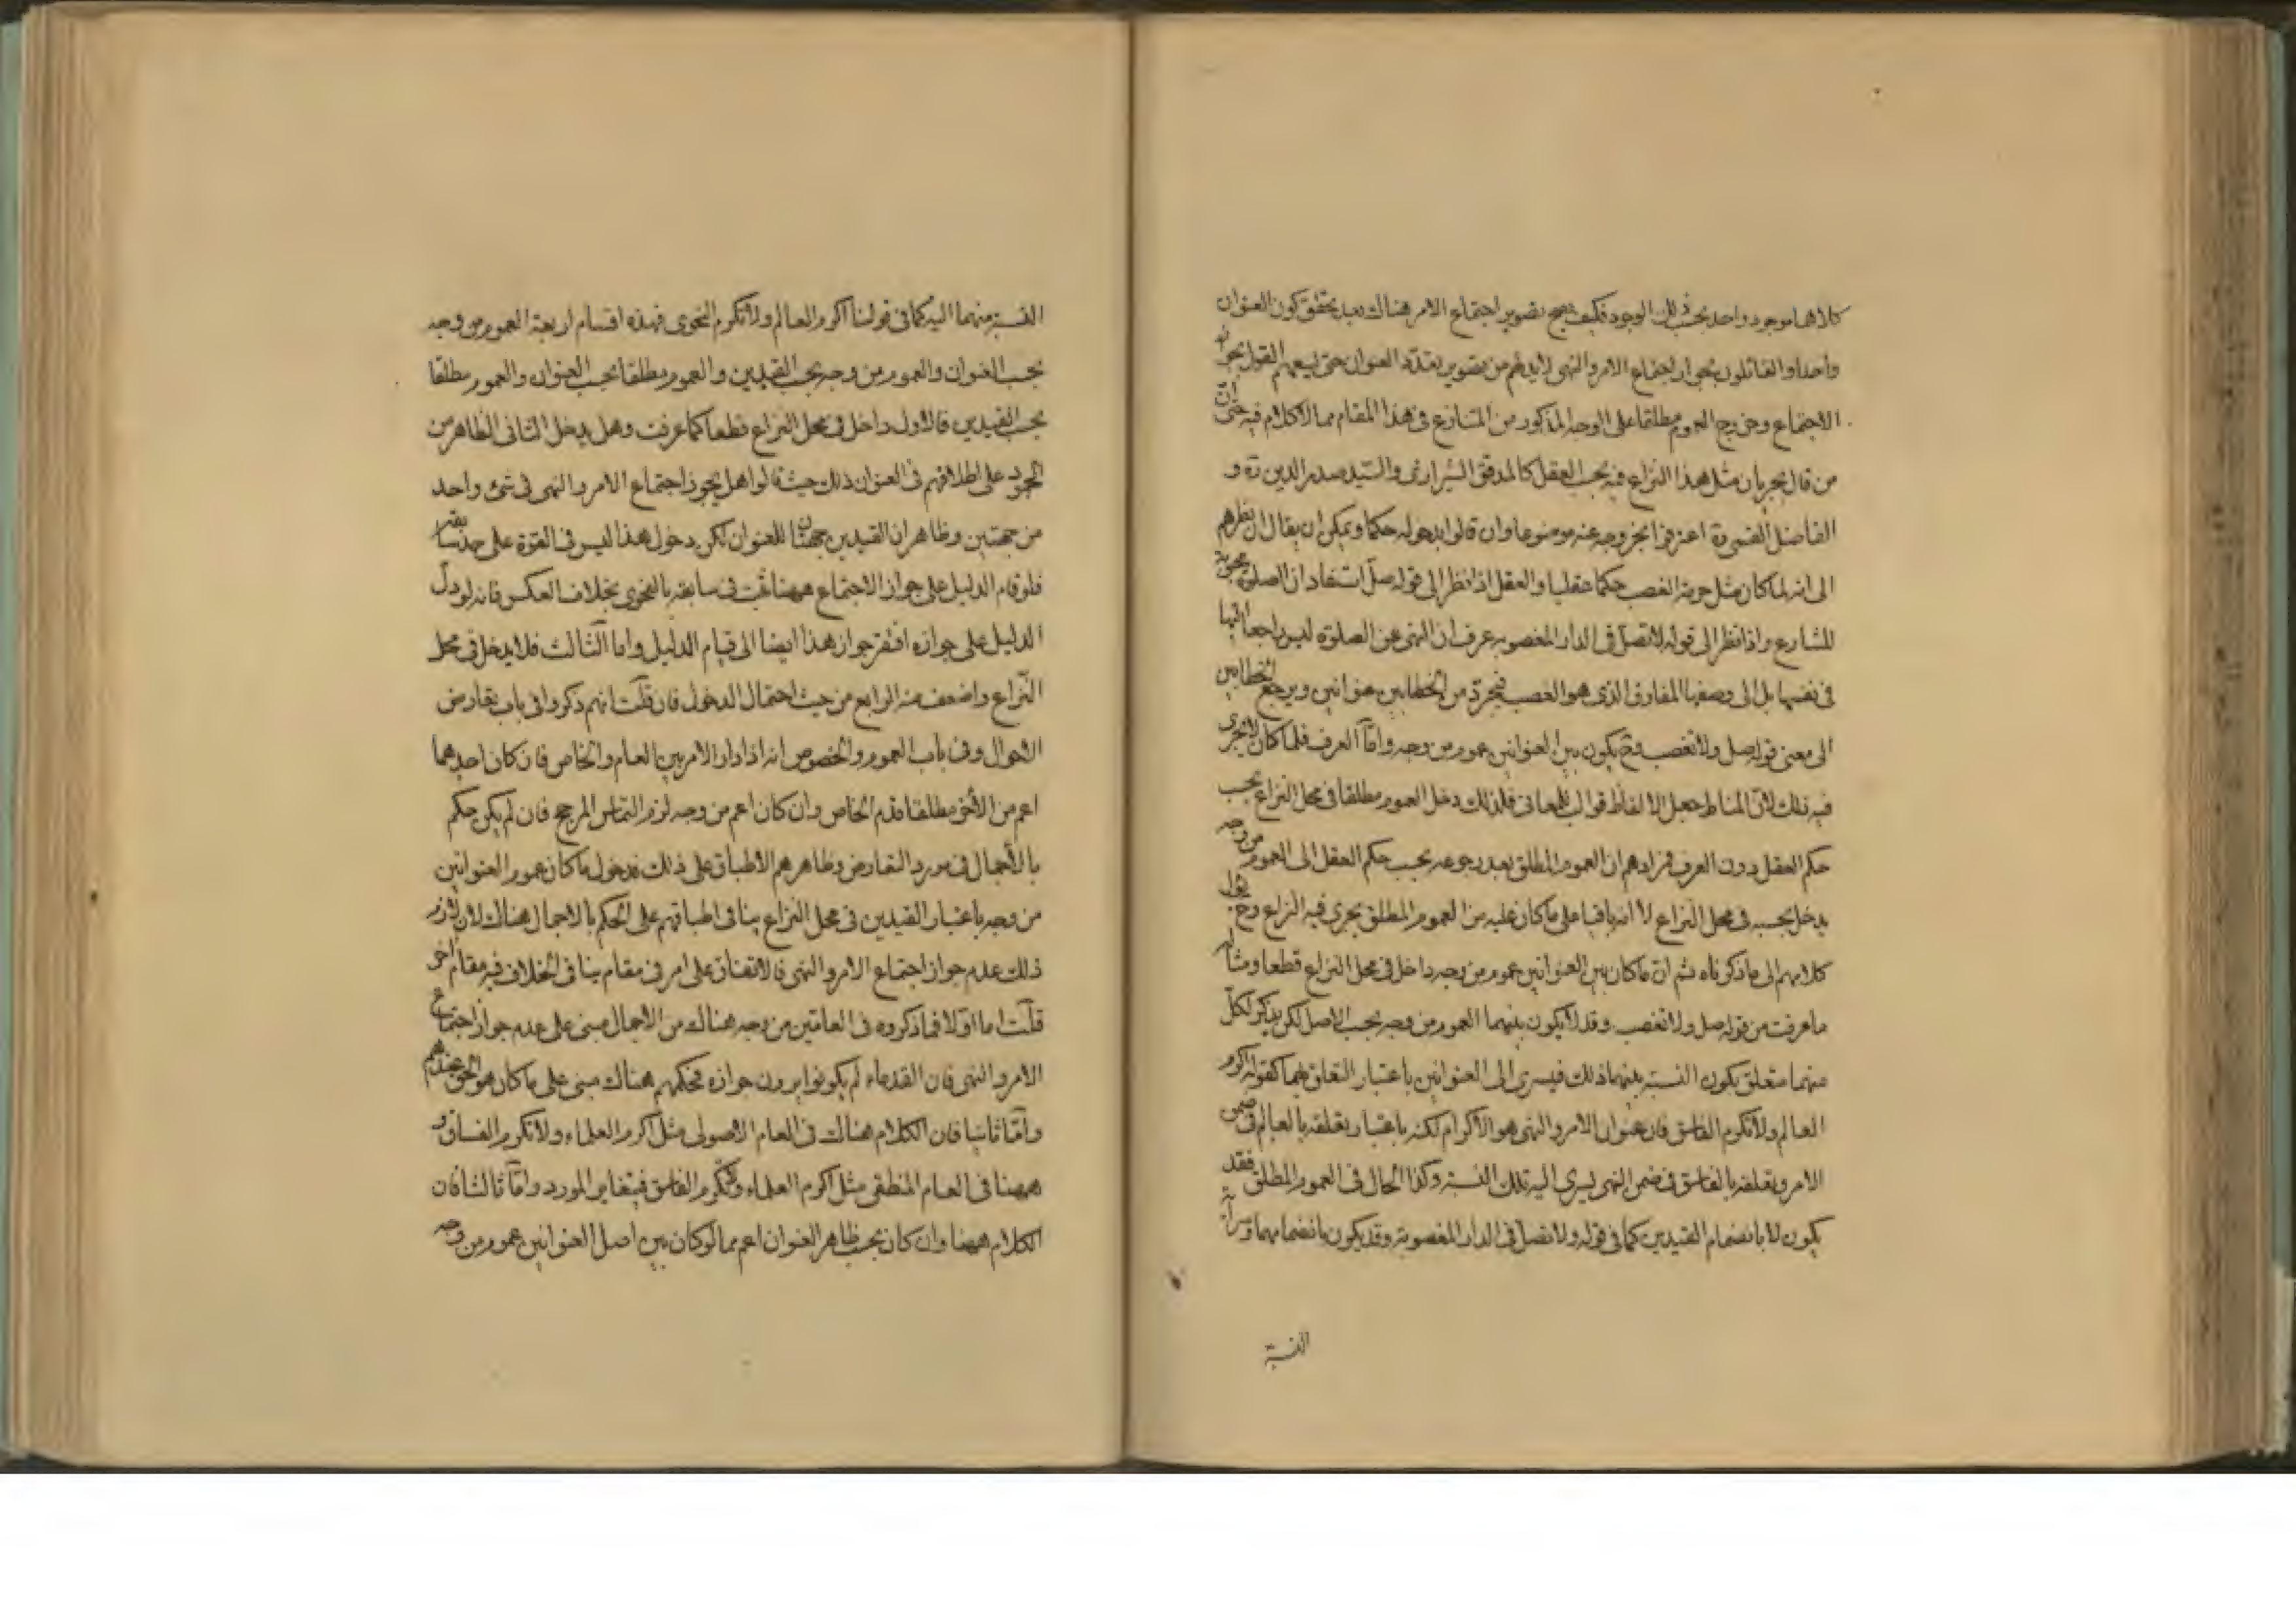 كلاهما موجود واحد بحسب ذلك الوجود فكيف يصح تصوير اجتماع الامر هناك بعد تحقق كون العنوان
واحدا والقائلون بجواز اجتماع الامر والنهى لابد لهم من تصوير تعدد العنوان حتى يسعهم القول بجواز
الاجتماع وخروج العموم مطلقا على الوجه المذكور من المتنازع فى هذا المقام مما لاكلام فيه حتى ان
من قال بجريان مثل هذا النزاع فيه بحسب العقل كالمدقق الشيرازى والسيد صدر الدين ره و
الفاضل القمى ره اعترفوا بخروجه عنه موضوعا وان قالوا بدخوله حكما ويمكن ان يقال ان نظرهم
الى انه لما كان مثل حرمة الغصب حكما عقليا والعقل اذا نظر الى قوله صل استفاد ان الصلوة محبوبة
للشارع واذا نظر الى قوله لاتصل فى الدار المغصوبه عرف ان النهى عن الصلوة ليس راجعا اليها
فى نفسها بل الى وصفها المفارق الذى هو الغصب فيجرد من الخطابين عنوانين ويرجع الخطابين
الى معنى قوله صل ولاتغصب وح يكون بين العنوانين عموم من وجه واما العرف فلما كان لايجرى
فيه ذلك لان المناط جعل الالفاظ قوالب للمعانى فلذلك دخل العموم مطلقا فى محل النزاع بحسب
حكم العقل دون العرف فمرادهم ان العموم المطلق بعد رجوعه بحسب حكم العقل الى العموم من وجه
يدخل بحسبه فى محل النزاع لا انه باقيا على ماكان عليه من العموم المطلق يجرى فيه النزاع وح
كلامهم الى ماذكرناه ثم ان ماكان بين العنوانين عموم من وجه داخل فى محل النزاع قطعا ومثاله
ماعرفت من قوله صل ولاتغصب وقد لايكون بينهما العموم من وجه بحسب الاصل لكن يذكر لكل
منهما متعلق يكون النسبة بينهما ذلك فيسرى الى العنوانين باعتبار التعلق بهما كقوله اكرم
العالم ولاتكرم الفاسق فان عنوان الامر والنهى هو الاكرام لكنه باعتبار تعلقه بالعالم فى ضمن
الامر وتعلقه بالفاسق فى ضمن النهى يسرى اليه تلك النسبة وكذا الحال فى العموم المطلق فقد
يكون لا بانضمام القيدين كما فى قوله ولاتصل فى الدار المغصوبة وقد يكون بانضمامهما وسراية
النسبة
النسبة منهما اليه كما فى قولنا اكرم العالم ولاتكرم النحوى فهذه اقسام اربعة العموم من وجه
بحسب العنوان والعموم من وجه بحسب القيدين والعموم مطلقا بحسب العنوان والعموم مطلقا
بحسب القيدين فالاول داخل فى محل النزاع قطعا كما عرفت وهل يدخل الثانى الظاهر من
الجمود على اطلاقهم فى العنوان ذلك حيث قالوا هل يجوز اجتماع الامر والنهى فى شئ واحد
من جهتين وظاهر ان القيدين جهتان للعنوان لكن دخول هذا ليس فى القوة على حد سابقه
فلو قام الدليل على جواز الاجتماع ههنا ثبت فى سابقه بالفحوى بخلاف العكس فانه لو دل
الدليل على جوازه افتقر جواز هذا ايضا الى قيام الدليل واما الثالث فلا يدخل فى محل
النزاع واضعف منه الرابع من حيث احتمال الدخول فان قلت انهم ذكروا فى باب تعارض
الاحوال وفى باب العموم والخصوص انه اذا دار الامر بين العام والخاص فان كان احدهما
اعم من الاخر مطلقا قدم الخاص وان كان اعم من وجه لزم التماس المرجح فان لم يكن حكم
بالاجمال فى مورد التعارض وظاهرهم الاطباق على ذلك فدخول ماكان عموم العنوانين
من وجه باعتبار القيدين فى محل النزاع ينافى اطباقهم على الحكم بالاجمال هناك لان لازم
ذلك عدم جواز اجتماع الامر والنهى فالاتفاق على امر فى مقام ينافى الخلاف فيه مقام اخر
قلت اما اولا فماذكروه فى العامين من وجه هناك من الاجمال مبنى على عدم جواز اجتماع
الامر والنهى فان القدماء لم يكونوا يرون جوازه فحكمهم هناك مبنى على ماكان هو الحق عندهم
واما ثانيا فان الكلام هناك فى العام الاصولى مثل اكرم العلماء ولاتكرم الفساق و
ههنا فى العام المنطقى مثل اكرم العلماء ولاتكرم الفاسق فيتغاير المورد واما ثالثا فان
الكلام ههنا وان كان بحسب ظاهر العنوان اعم مما لو كان بين اصل العنوانين عموم من وجه